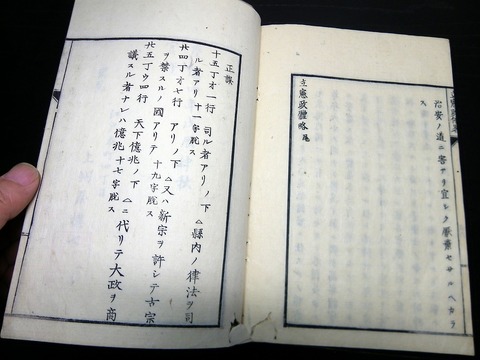 治安ノ道ニ害アリ宜シク厳素セサルヘカラ
ス
立憲政體略 尾
正誤
十五丁オ一行 司ル者アリノ下 △縣内ノ律法ヲ司
ル者アリ十一字脱ス
廿四丁オ七行 アリノ下 △又ハ新宗ヲ許シテ古宗
ヲ禁スルノ國アリテ十九字脱ス
廿五丁ウ四行 天下億兆ノ下 △ニ代リテ大政ヲ商
議スル者ナレハ億兆十七字脱ス